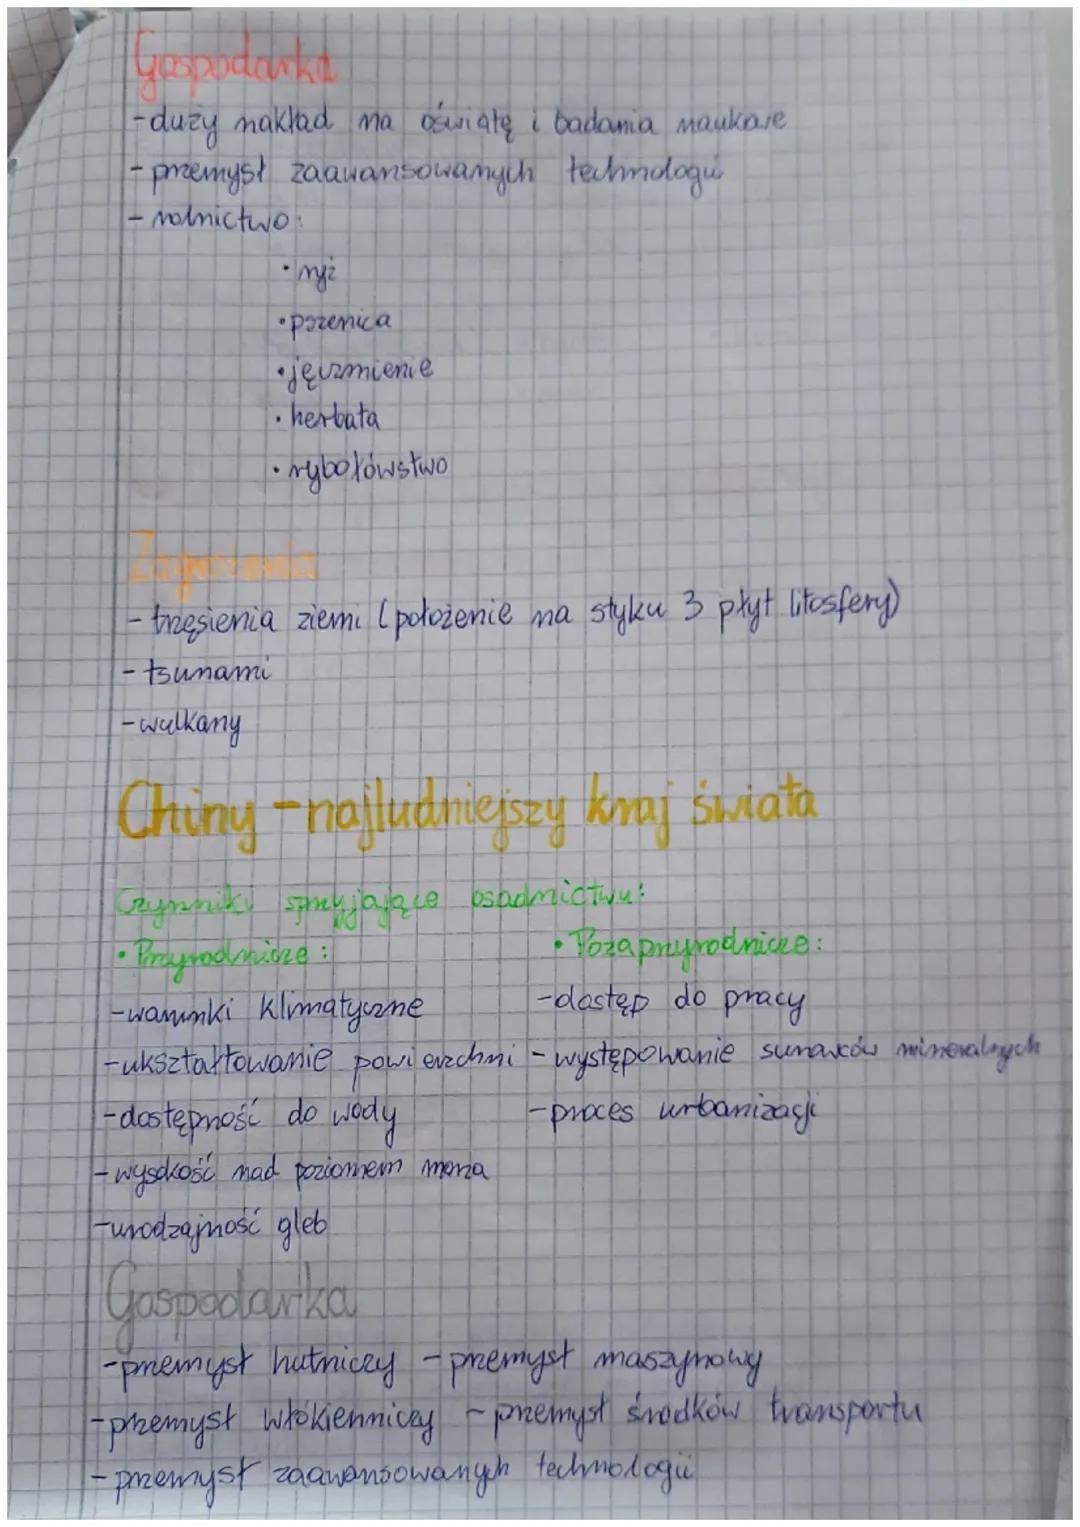 Gospodarka
-duży nakład na oświatę i badania naukowe
-przemysł zaawansowanych technologii
- rolnictwo:
• ryż
•pszenica
•jęczmienie
• herbata
• rybołówstwo
Zagrożenia
- trzęsienia ziemi (położenie na styku 3 płyt litosfery)
- tsunami
-wulkany
Chiny - najludniejszy kraj świata
Czynniki sprzyjające osadnictwu:
• Przyrodnicze: • Pozaprzyrodnicze:
-warunki klimatyczne -dostęp do pracy
-ukształtowanie powierzchni - występowanie surowców mineralnych
-dostępność do wody -proces urbanizacji
-wysokość nad poziomem morza
-urodzajność gleb
Gospodarka
-przemysł hutniczy -przemysł maszynowy
-przemysł włókienniczy -przemysł środków transportu
- przemysł zaawansowanych technologii